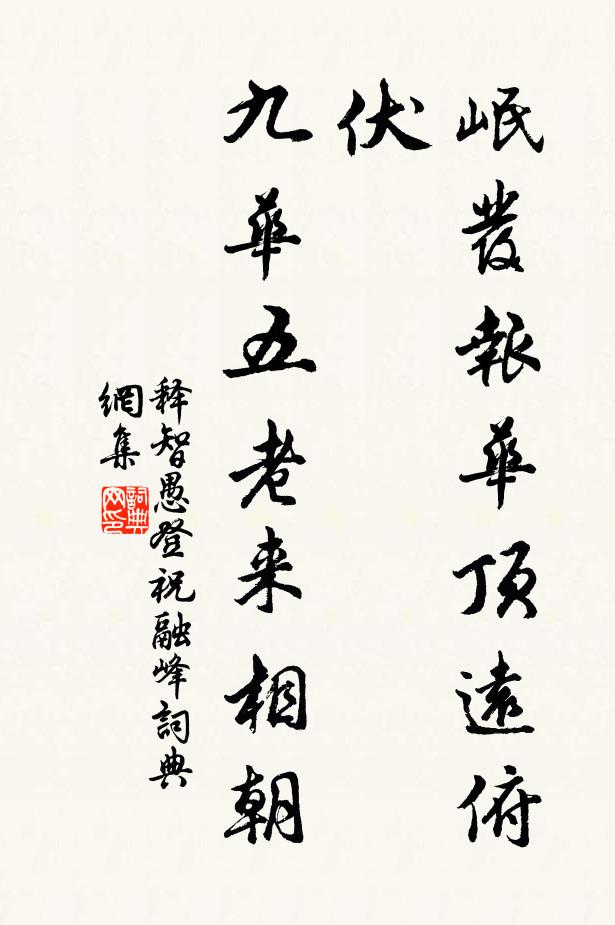 岷發報華頂遠俯
伏
九華五老来相朝
释智愚登祝融峰詞典
網集
詞典
网印